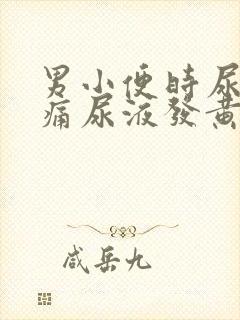 男小便時尿
痛尿液發黃
咸岳九